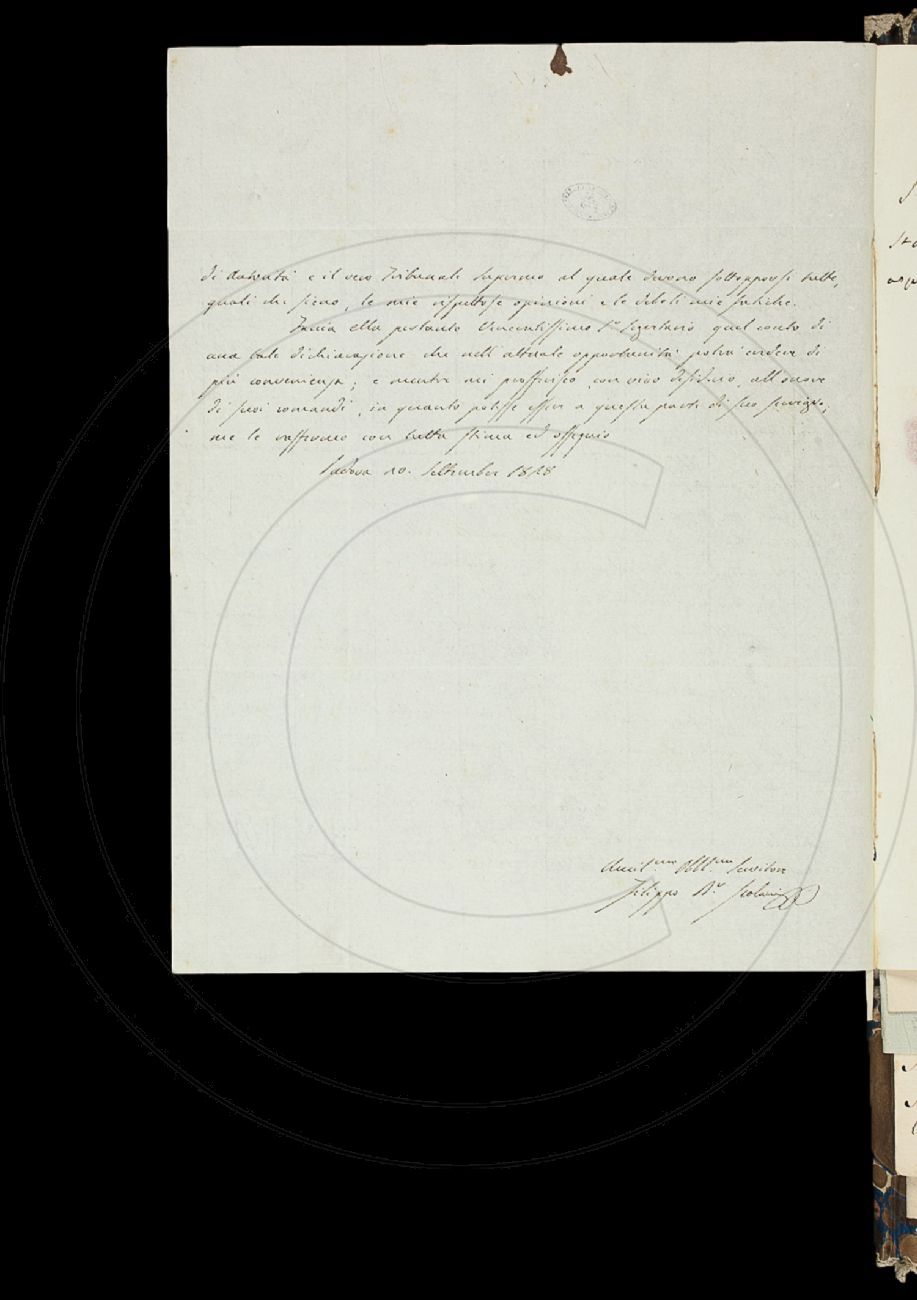 di Autorità e il vero Tribunale supremo al quale devono sottopporsi tutte,
quali che sieno, le mie rispettose opinioni e le deboli mie fatiche.
Faccia ella pertanto Sr. Segretario quel conto di
una tale dichiarazione che nell'attuale opportunità potrà credere di
più convenienza; e mentre mi profferisco, con vivo desiderio, all'onore
di suoi comandi, in quanto potesse esser a questa parte di suo servigio,
me le raffermo con tutta stima ed ossequio
Padova 10. Settembre 1828
Umil.mo Obbl.mo Servitore
Filippo Dr. Scolari